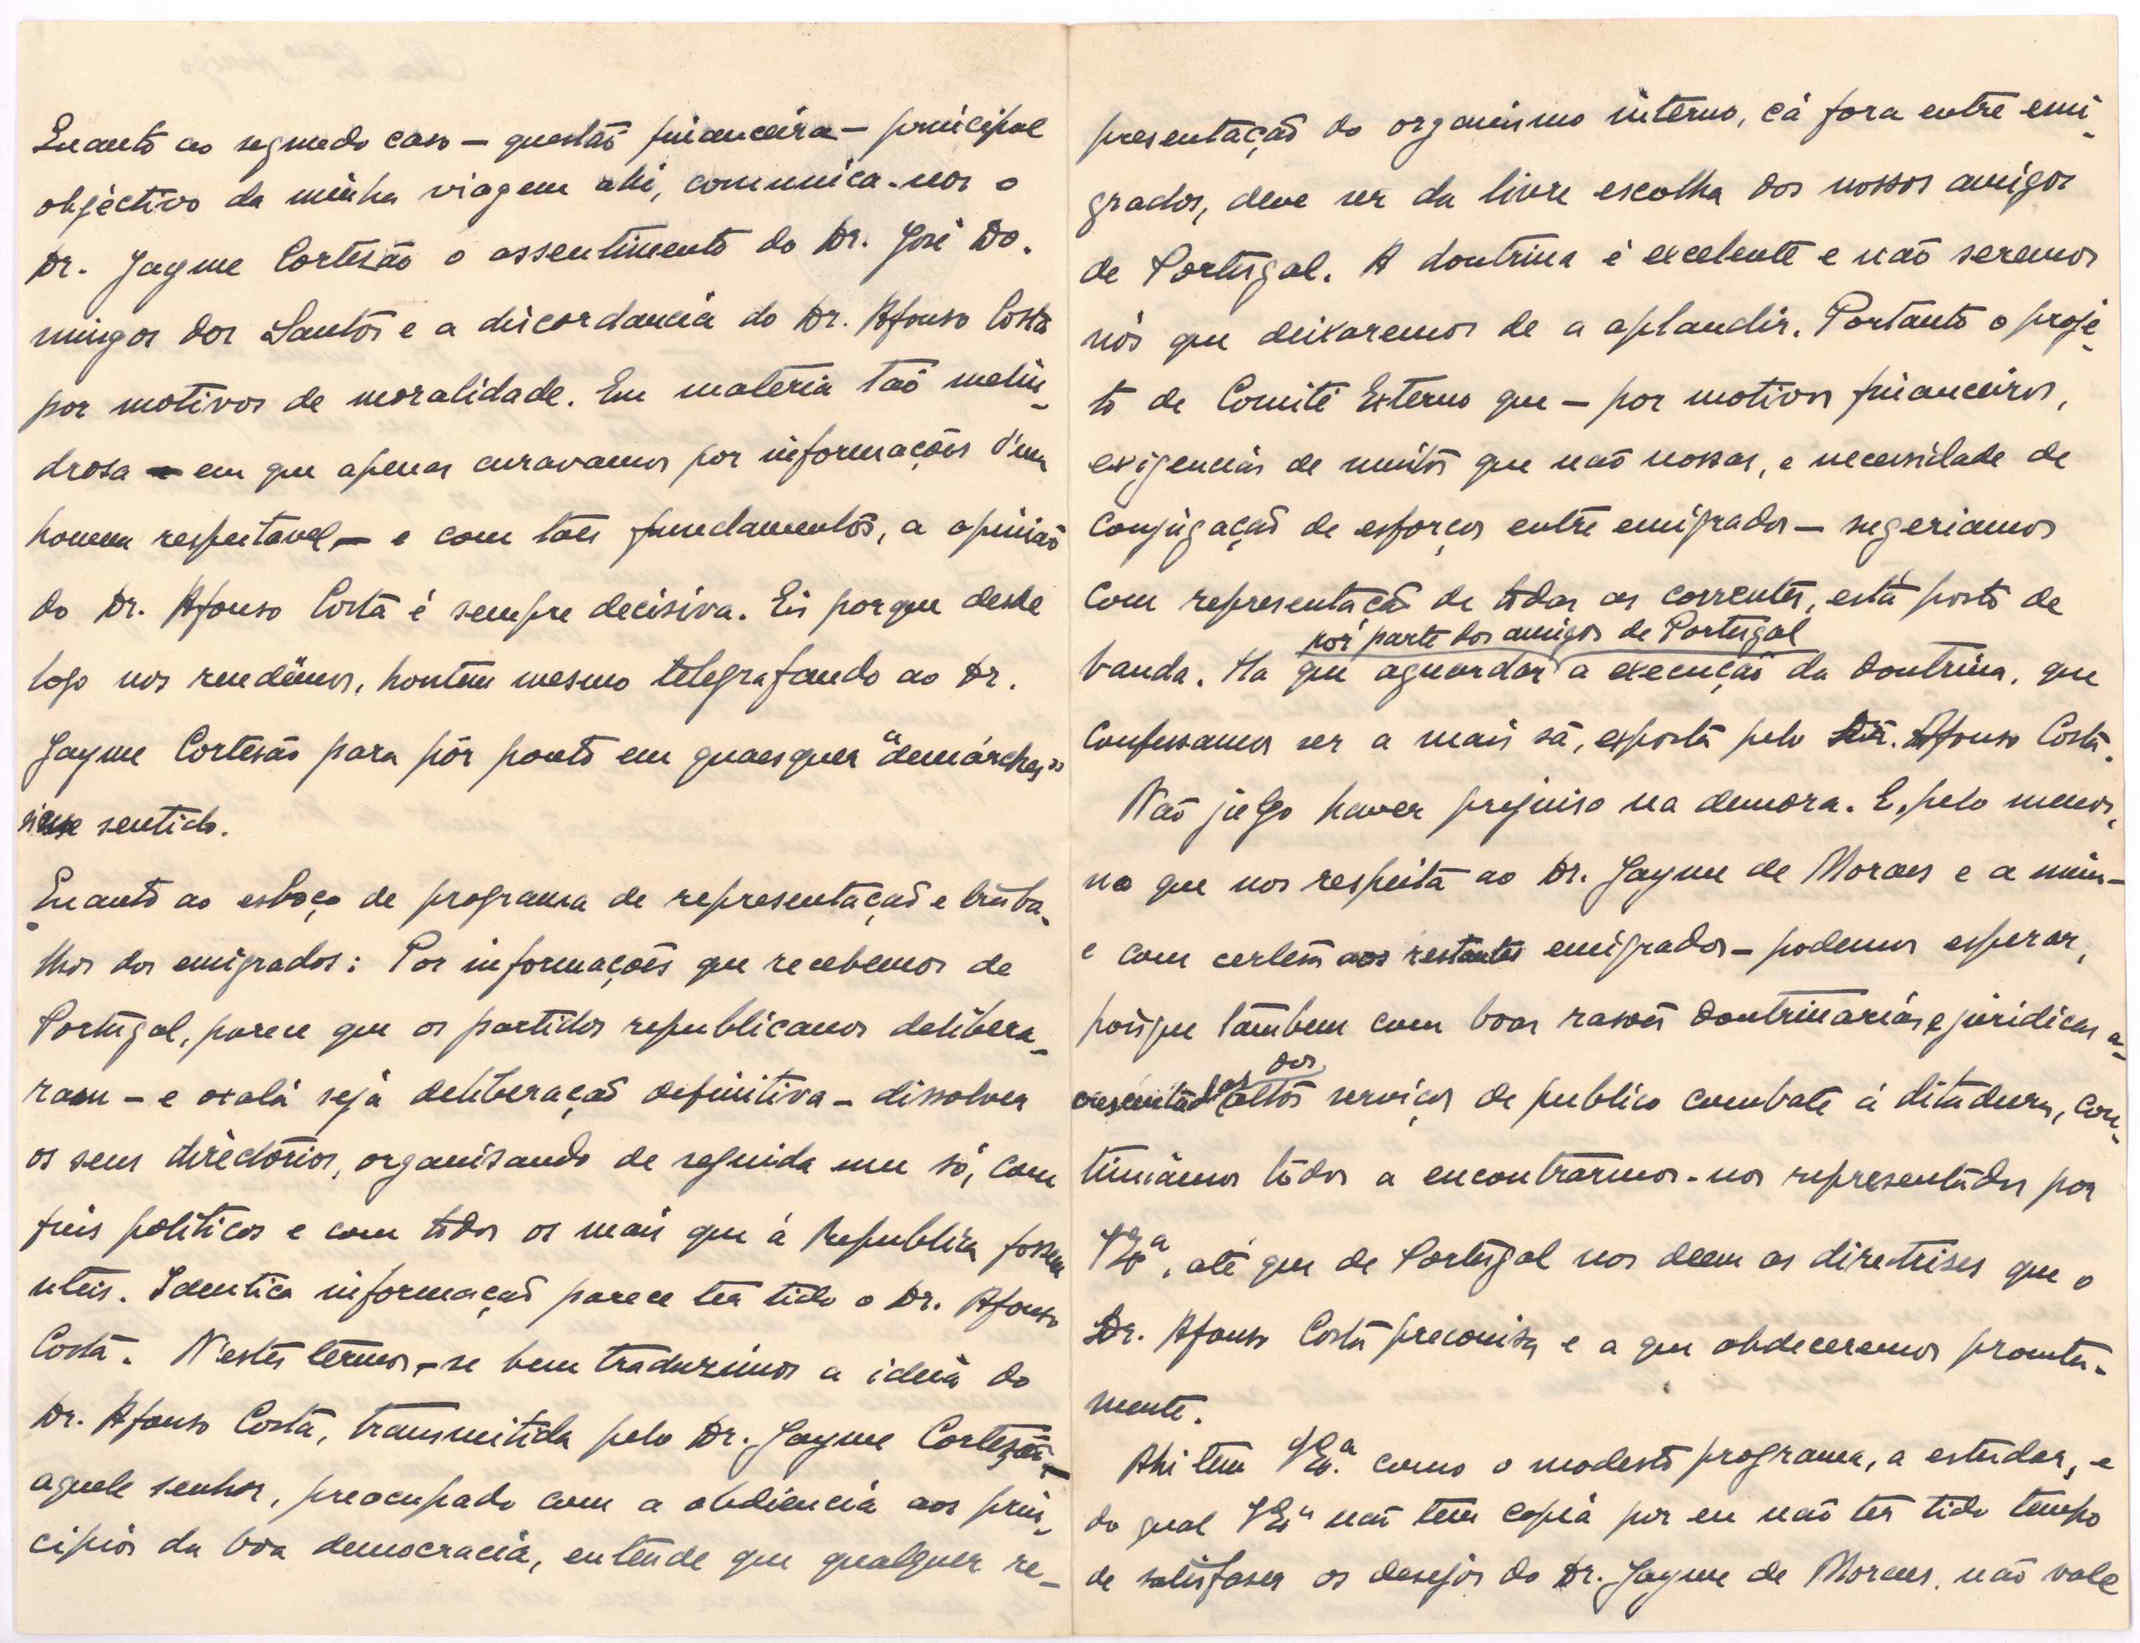 Quanto ao segundo caso — questão financeira — principal
objéctivo da minha viagem ahi, comunica-nos o
Dr. Jayme Cortesão o assentimento do Dr. José Do-
mingos dos Santos e a discordancia do Dr. Afonso Costa
por motivos de moralidade. Em materia tão melin-
drosa — em que apenas curavamos por informações d'um
homem respeitavel — e com taes fundamentos, a opinião
do Dr. Afonso Costa é sempre decisiva. Eis porque desde
logo nos rendêmos, hontem mesmo telegrafando ao Dr.
Jayme Cortesão para pôr ponto em quaesquer "demárches"
nesse sentido.
Quanto ao esboço de programa de representação e traba-
lhos dos emigrados: Por informações que recebemos de
Portugal, parece que os partidos republicanos delibera-
ram — e oxalá seja deliberação definitiva — dissolver
os seus diréctorios, organisando de seguida um só, com
fins politicos e com todos os mais que á Republica fossem
uteis. Identica informação parece ter tido o Dr. Afonso
Costa. N'estes termos, — se bem traduzimos a ideia do
Dr. Afonso Costa, transmitida pelo Dr. Jayme Cortesão —
aquele senhor, preocupado com a obdiencia aos prin-
cipios da boa democracia, entende que qualquer re-
presentação do organismo interno, cá fora entre emi-
grados, deve ser da livre escolha dos nossos amigos
de Portugal. A doutrina é excelente e não seremos
nós que deixaremos de a aplaudir. Portanto o projé-
to de Comité Externo que — por motivos financeiros,
exigencias de muitos que não nossas, e necessidade de
conjugação de esforços entre emigrados — sugeriamos
com representação de todas as correntes, está posto de
por parte dos amigos de Portugal
banda. Ha que aguardar a execução da doutrina, que
confessamos ser a mais sã, esposta pelo Dr. Afonso Costa.
Não julgo haver prejuiso na demora. E, pelo menos,
no que nos respeita ao Dr. Jayme de Moraes e a mim —
e com certesa aos restantes emigrados — podemos esperar,
porque tambem com boas rasões doutrinarias e juridicas a-
crescentadas dos
altos serviços de publico combate á ditadura, con-
tinuâmos todos a encontrarmos-nos representados por
V. Ex.ª, até que de Portugal nos deem as diretrises que o
Dr. Afonso Costa preconisa e a que obdeceremos pronta-
mente.
Ahi tem V. Ex.ª como o modesto programa, a estudar, e
do qual V. Ex.ª não tem copia por eu não ter tido tempo
de satisfaser os desejos do Dr. Jayme de Moraes, não vale